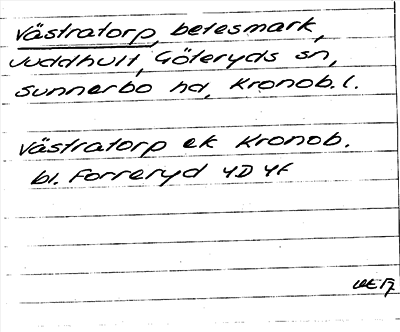 Västratorp, betesmark,
Juddhult, Göteryds sn,
Sunnerbo hd, Kronob. l.
Västratorp ek Kronob.
bl. Forreryd 4D 4f